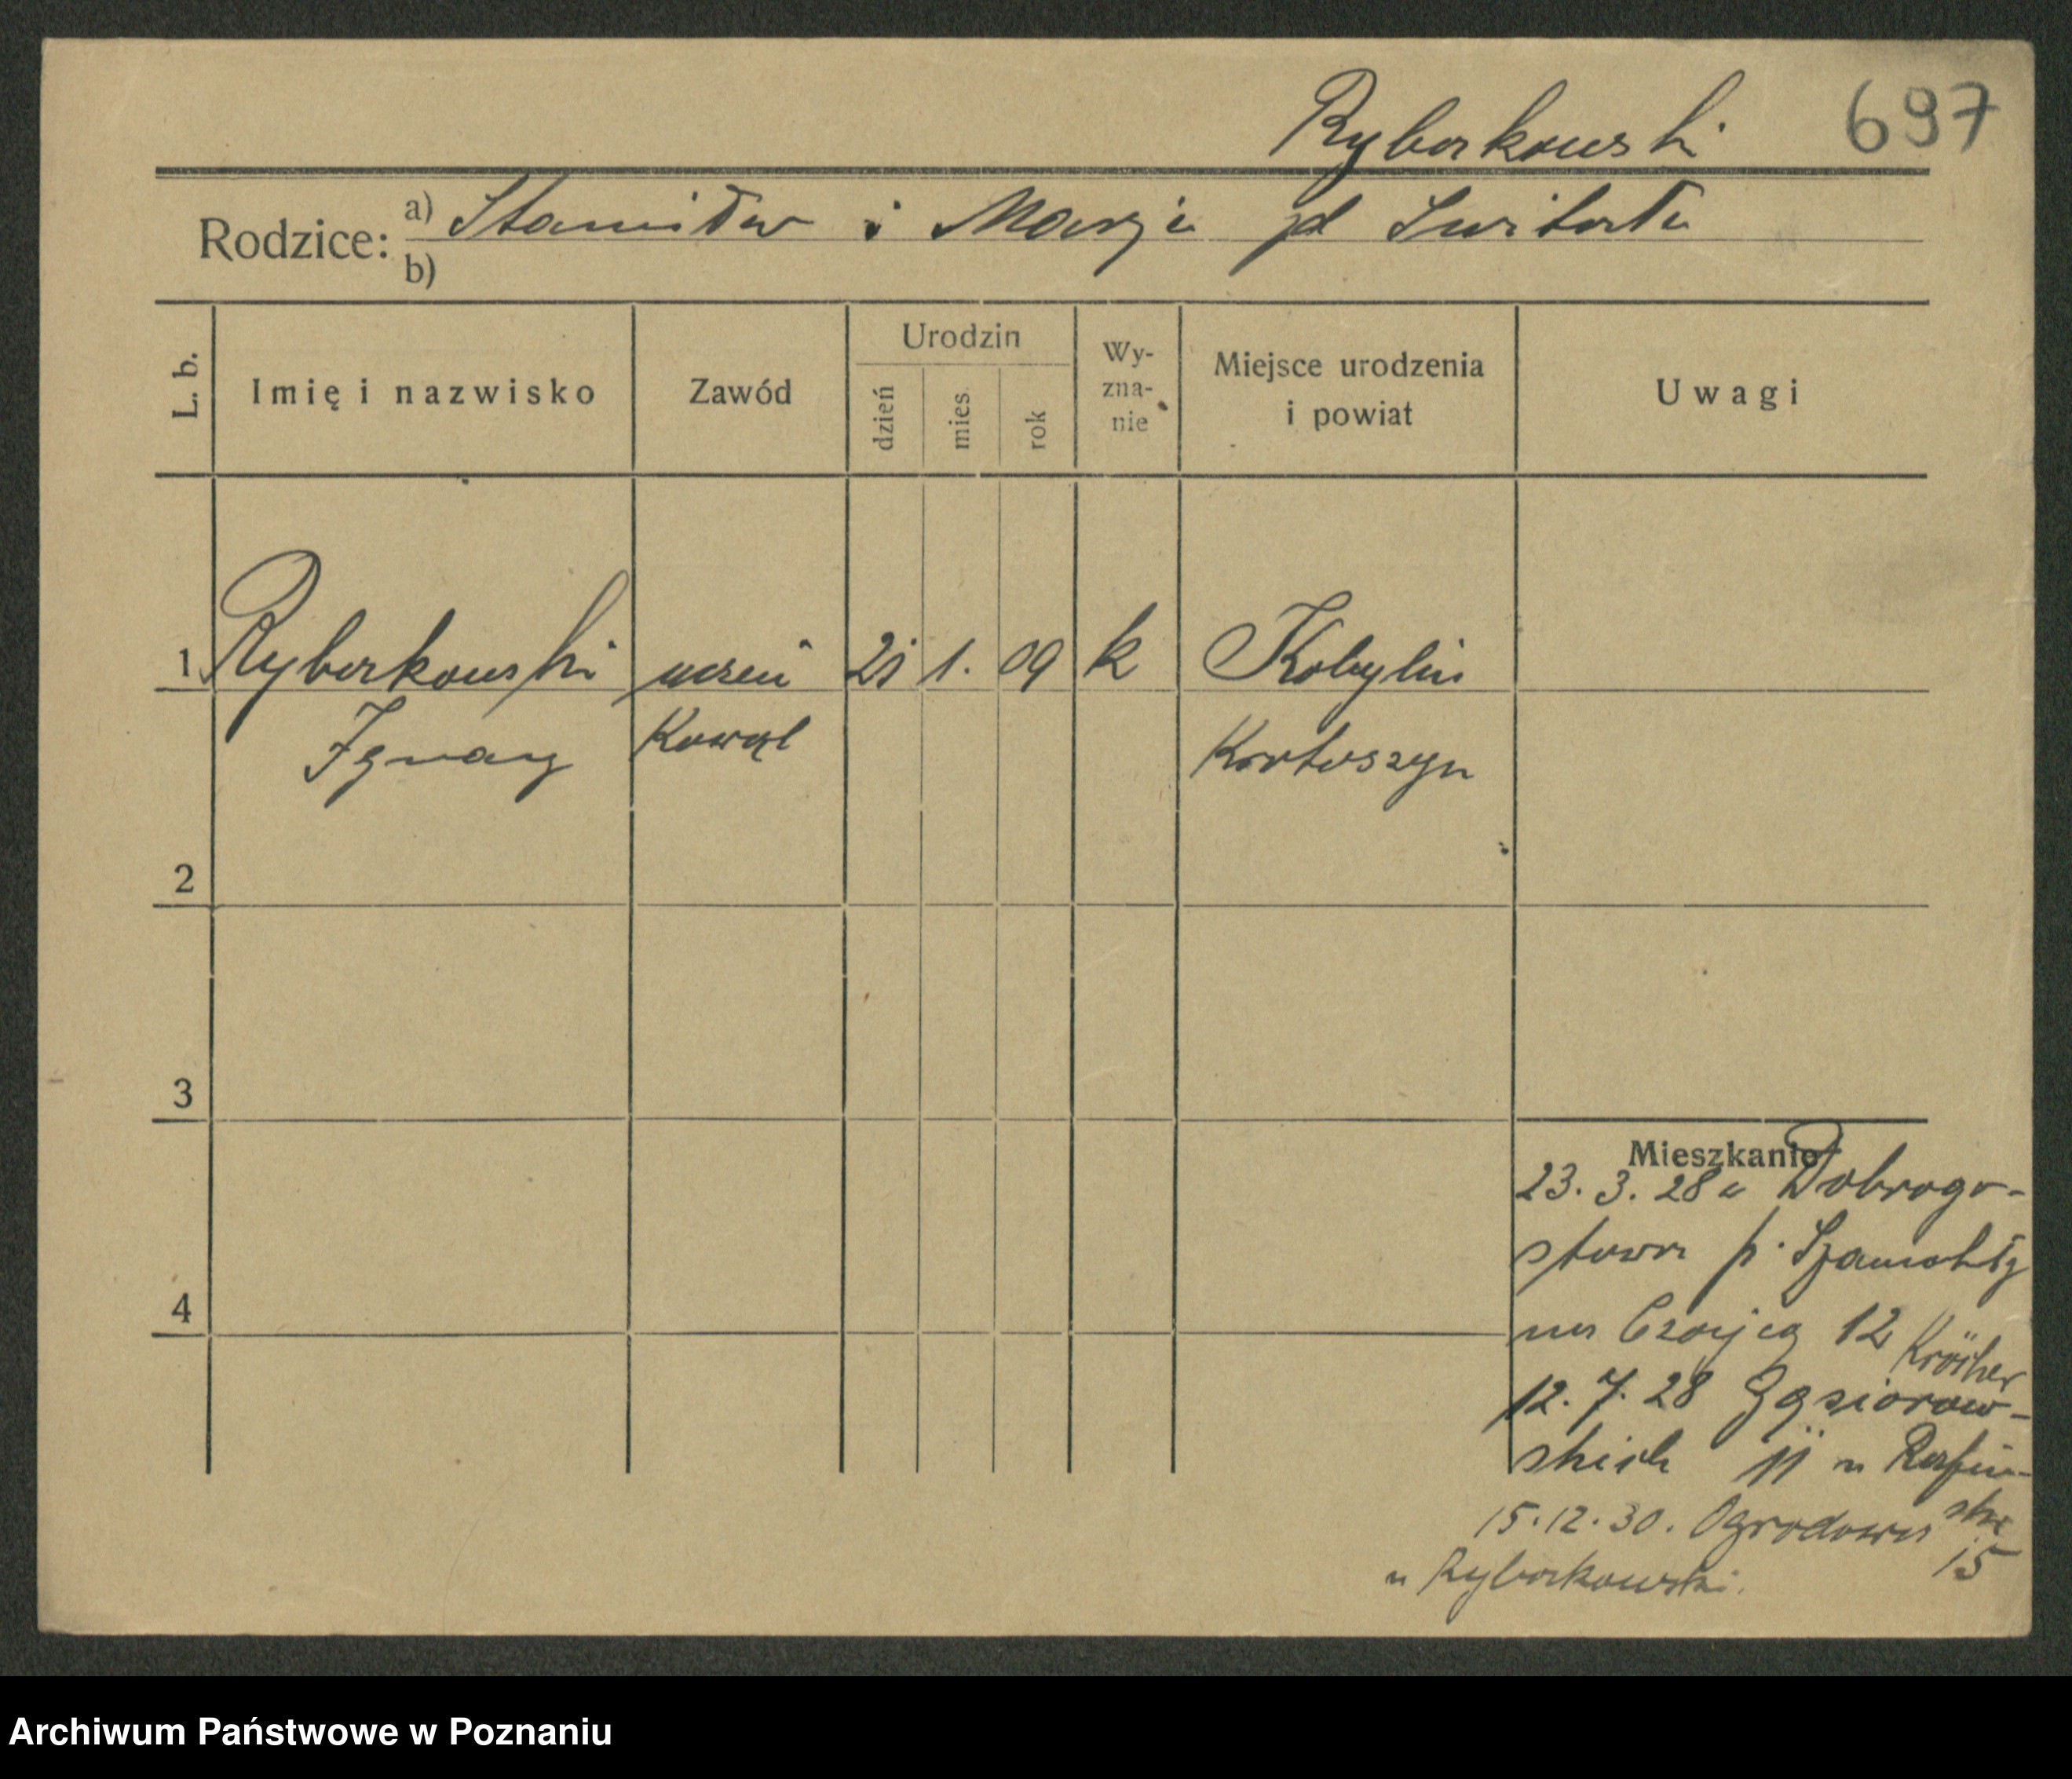 Ryborkowski 697
Rodzice: a) Stanisław i Marja zd Switała
b)
L. b. Imię i nazwisko Zawód Urodzin dzień mies. rok Wy-zna-nie Miejsce urodzenia i powiat Uwagi
1 Ryborkowski uczeń 21 1. 09 k Kobylin
Ignacy Kowal Krotoszyn
2
3
4
Mieszkanie
23. 3. 28 z Dobrogo-
stowa p. Szamotuły
na Czajcą 12 Kröcher
12. 7. 28 Gąsiorow-
skich 11 u
15.12.30. Ogrodowa 15
u Ryborkowski.
Archiwum Państwowe w Poznaniu